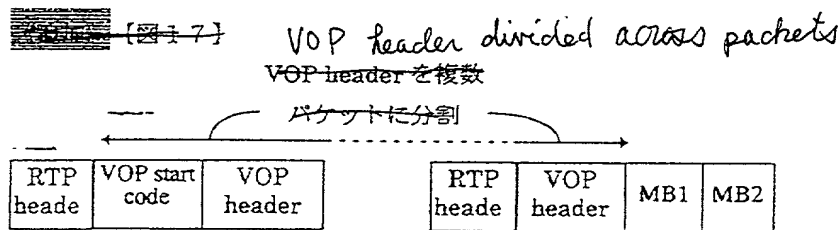 【図17】 VOP header divided across packets
VOP header を複数
パケットに分割
RTP heade
VOP start code
VOP header
RTP heade
VOP header
MB1
MB2